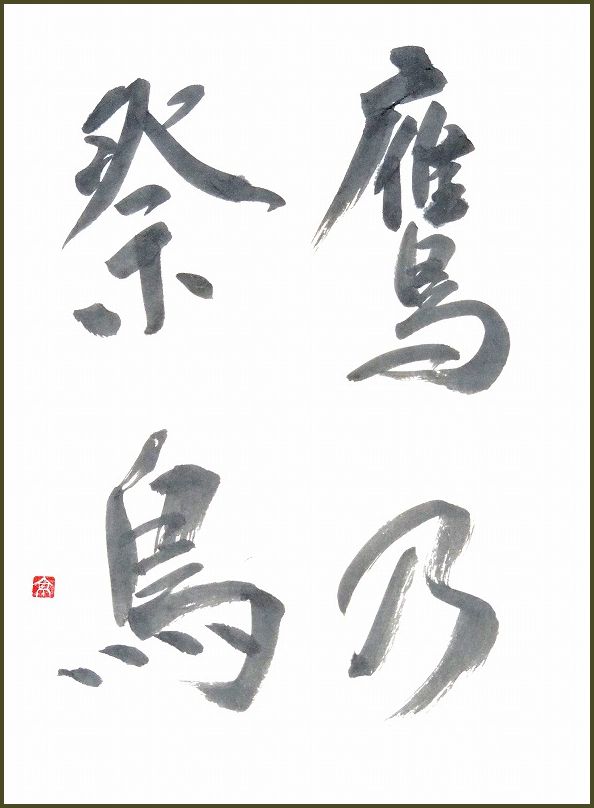 鷹乃
祭鳥